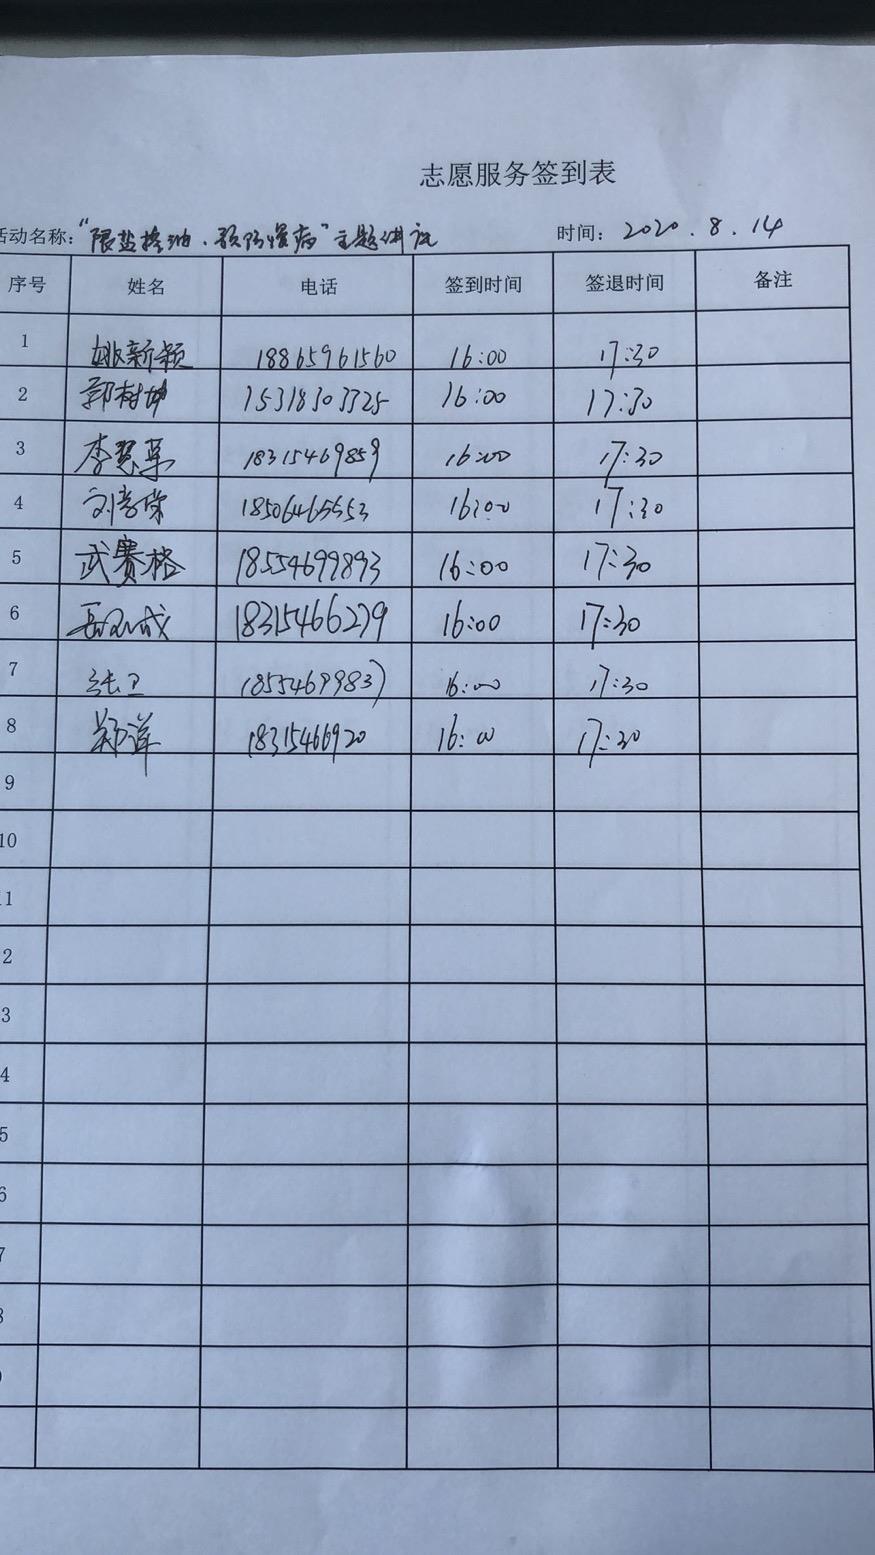 志愿服务签到表
活动名称：“限盐控油、预防慢病”主题讲说 时间：2020.8.14
序号 姓名 电话 签到时间 签退时间 备注
1 姚新颖 18865961560 16:00 17:30
2 郭树坤 15318303325 16:00 17:30
3 李慧草 18315469859 16:00 17:30
4 18506465553 16:00 17:30
5 武赛格 18554699893 16:00 17:30
6 18315466279 16:00 17:30
7 张卫 18554699837 16:00 17:30
8 郑萍 18315466920 16:00 17:30
9
10
11
2
3
4
5
6
7
8